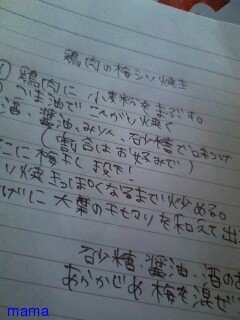 鶏肉の梅シソ焼き
① 鶏肉に 小麦粉をまぶす。
ごま油で こんがり焼く
酒、醤油、みりん、砂糖で味つけ
(割合はお好みで)
こに梅干し 投下!
り焼きっぽくなるまで炒める。
げに 大葉の千切りを和えて出
砂糖、醤油、酒の
あらかじめ 梅を混ぜ
mama